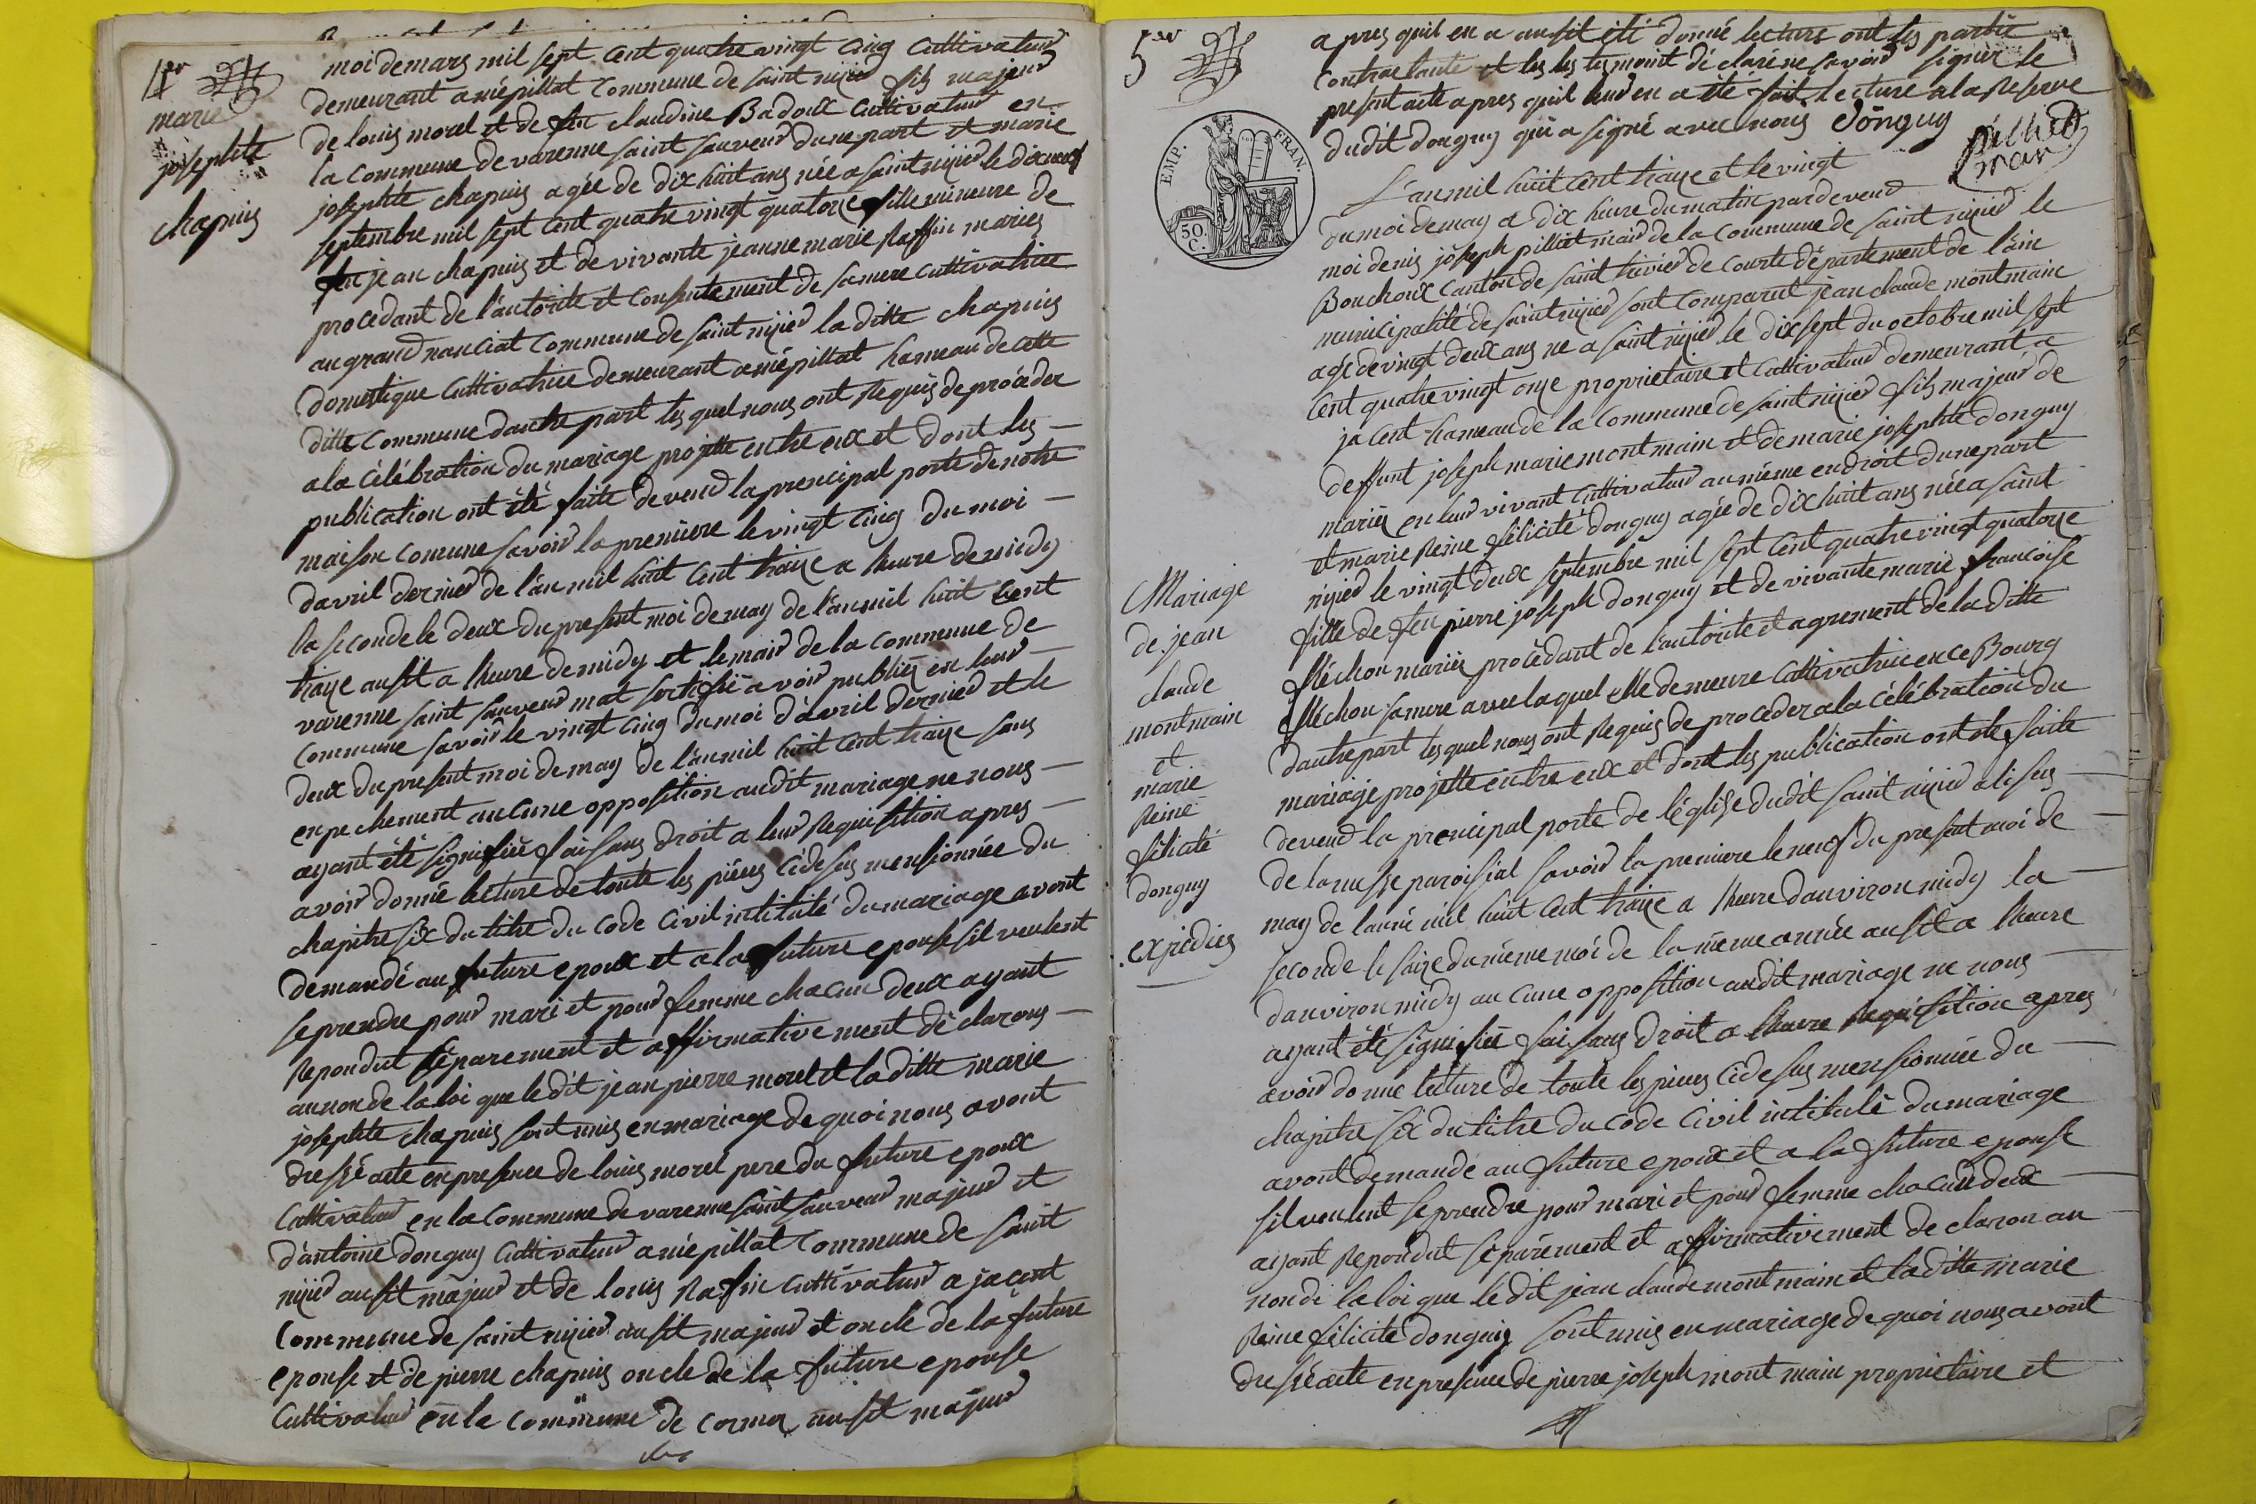 4er
marie
josephte
chapuis
moi de mars mil sept cent quatre vingt cinq cultivateur
demeurant a mépillat commune de saint nizier fils majeur
de louis morel et de feu claudine Badoux cultivateur en
la commune de varenne saint sauveur dune part et marie
josephte chapuis agée de dix huit ans née a saint nizier le dix neuf
septembre mil sept cent quatre vingt quatorze fille mineure de
feu jean chapuis et de vivante jeanne marie Raffin mariés
procedant de l'autorité et consentement de sa mere cultivatrice
au grand nanciat commune de saint nizier la ditte chapuis
domestique cultivatrice demeurant a mépillat hameau de cette
ditte commune dautre part lesquel nous ont Requis de procéder
a la célébration du mariage projetté entre eux et dont les
publication ont été faite devend la prencipal porte de notre
maison comune savoir la premiere le vingt cinq du moi
davril dernier de l'an mil huit cent traize a lheure de midy
la seconde le deux du present moi de may de l'an mil huit cent
traize ausit a lheure de midy et le mair de la commune de
varenne saint sauveur mat sertifié avoir publiéz en leur
commune savoir le vingt cinq du moi d'avril dernier et le
deux du present moi de may de l'an mil huit cent traize sans
enpechement aucune opposition audit mariage ne nous
ayant été signifiée faisans droit a leur Requisition apres
avoir donné lecture de toute les piéces cidesus mensionnée du
chapitre six du titre du code civil intitulé du mariage avont
demandé au future epoux et a la future epouse sil veulent
se prendre pour mari et pour femme chacun deux ayant
Repondut séparement et affirmativement déclarons
au non de la loi que le dit jean pierre morel et la ditte marie
josephte chapuis sont unis en mariage de quoi nous avont
dressé acte en presence de louis morel pere du future epoux
cultivateur en la commune de varenne saint sauveur majeur et
d'antoine donguy cultivateur a mépillat commune de saint
nizier ausit majeur et de louis Rafin cultivateur a jacent
commune de saint nizier ausit majeur et oncle de la future
epouse et de pierre chapuis oncle de la future epouse
cultivateur en la commune de cormoz ausit majeur
5er
apres quil en a ausit été donné lecture ont les partie
contractante et les tesmoint déclaré ne savoir signér le
present acte apres quil leur en a été fait lecture a la Reserve
dudit donguy qui a signé avec nous Donguy
pilliet
mair
EMP. FRAN.
50. C.
L'an mil huit cent traize et le vingt
du moi de may a dix heure du matin par devend
moi denis joseph pilliet mair de la commune de saint nizier le
Bouchoux canton de saint trivier de courte département de l'ain
municipalité de saint nizier sont comparut jean claude montmain
agé de vingt deux ans né a saint nizier le dix sept du octobre mil sept
cent quatre vingt onze proprietaire et cultivateur demeurant a
jacent hameau de la commune de saint nizier fils majeur de
deffunt joseph marie montmain et de marie josephte donguy
mariéz en leur vivant cultivateur au méme endroit dune part
et marie Reine félicité donguy agée de dix huit ans née a saint
nizier le vingt deux septembre mil sept cent quatre vingt quatorze
fille de feu pierre joseph donguy et de vivante marie francoise
fléchon mariéz procédant de l'autorité et agrement de la ditte
fléchon sa mere avec laquel elle demeure cultivatrice en ce Bourg
dautre part lesquel nous ont Requis de proceder a la célébration du
mariage projetté entre eux et dont les publication ont été faite
devend la prencipal porte de l'église dudit saint nizier a lisus
de la messe paroisial savoir la premiere le neuf du present moi de
may de l'anné mil huit cent traize a lheure danviron midy la
seconde le saize du méme moi de la méme année ausit a lheure
danviron midy aucune opposition audit mariage ne nous
ayant été signifiée faisans droit a lheure Requisition apres
avoir donné lecture de toute les pieces cidesus mensionnée du
chapitre six du titre du code civil intitulé du mariage
avont demandé au future epoux et a la future epouse
sil veulent se prendre pour mari et pour femme chacun deux
ayant Repondut séparément et affirmativement declaron au
non de la loi que le dit jean claude montmain et la ditte marie
Reine félicité donguy sont unis en mariage de quoi nous avont
dressé acte en presence de pierre joseph montmain proprietaire et
Mariage
de jean
claude
montmain
et
marie
Reine
félicité
donguy
expédiés